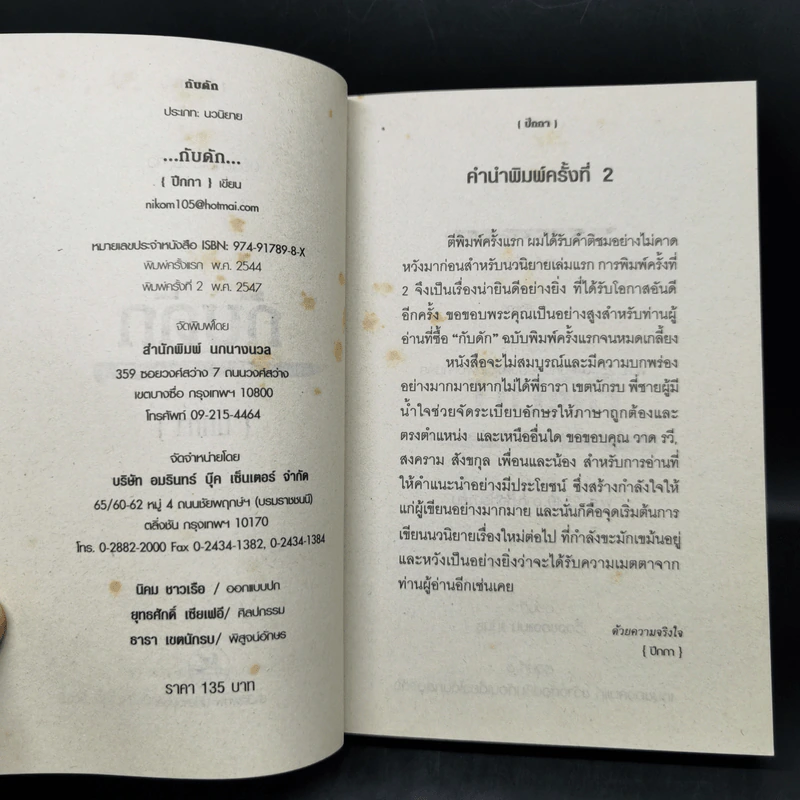 กับดัก
ประเภท: นวนิยาย
...กับดัก...
{ ปีกกา } เขียน
nikom105@hotmai.com
หมายเลขประจำหนังสือ ISBN: 974-91789-8-X
พิมพ์ครั้งแรก พ.ศ. 2544
พิมพ์ครั้งที่ 2 พ.ศ. 2547
จัดพิมพ์โดย
สำนักพิมพ์ นกนางนวล
359 ซอยวงศ์สว่าง 7 ถนนวงศ์สว่าง
เขตบางซื่อ กรุงเทพฯ 10800
โทรศัพท์ 09-215-4464
จัดจำหน่ายโดย
บริษัท อมรินทร์ บุ๊ค เซ็นเตอร์ จำกัด
65/60-62 หมู่ 4 ถนนชัยพฤกษ์ฯ (บรมราชชนนี)
ตลิ่งชัน กรุงเทพฯ 10170
โทร. 0-2882-2000 Fax 0-2434-1382, 0-2434-1384
นิคม ชาวเรือ / ออกแบบปก
ยุทธศักดิ์ เซียเฟอี/ ศิลปกรรม
ธารา เขตนักรบ/ พิสูจน์อักษร
ราคา 135 บาท
{ ปีกกา }
คำนำพิมพ์ครั้งที่ 2
ตีพิมพ์ครั้งแรก ผมได้รับคำติชมอย่างไม่คาด
หวังมาก่อนสำหรับนวนิยายเล่มแรก การพิมพ์ครั้งที่
2 จึงเป็นเรื่องน่ายินดีอย่างยิ่ง ที่ได้รับโอกาสอันดี
อีกครั้ง ขอขอบพระคุณเป็นอย่างสูงสำหรับท่านผู้
อ่านที่ซื้อ “กับดัก” ฉบับพิมพ์ครั้งแรกจนหมดเกลี้ยง
หนังสือจะไม่สมบูรณ์และมีความบกพร่อง
อย่างมากมายหากไม่ได้พี่ธารา เขตนักรบ พี่ชายผู้มี
น้ำใจช่วยจัดระเบียบอักษรให้ภาษาถูกต้องและ
ตรงตำแหน่ง และเหนืออื่นใด ขอขอบคุณ วาด รวี,
สงคราม สังขกุล เพื่อนและน้อง สำหรับการอ่านที่
ให้คำแนะนำอย่างมีประโยชน์ ซึ่งสร้างกำลังใจให้
แก่ผู้เขียนอย่างมากมาย และนั่นก็คือจุดเริ่มต้นการ
เขียนนวนิยายเรื่องใหม่ต่อไป ที่กำลังขะมักเขม้นอยู่
และหวังเป็นอย่างยิ่งว่าจะได้รับความเมตตาจาก
ท่านผู้อ่านอีกเช่นเคย
ด้วยความจริงใจ
{ ปีกกา }